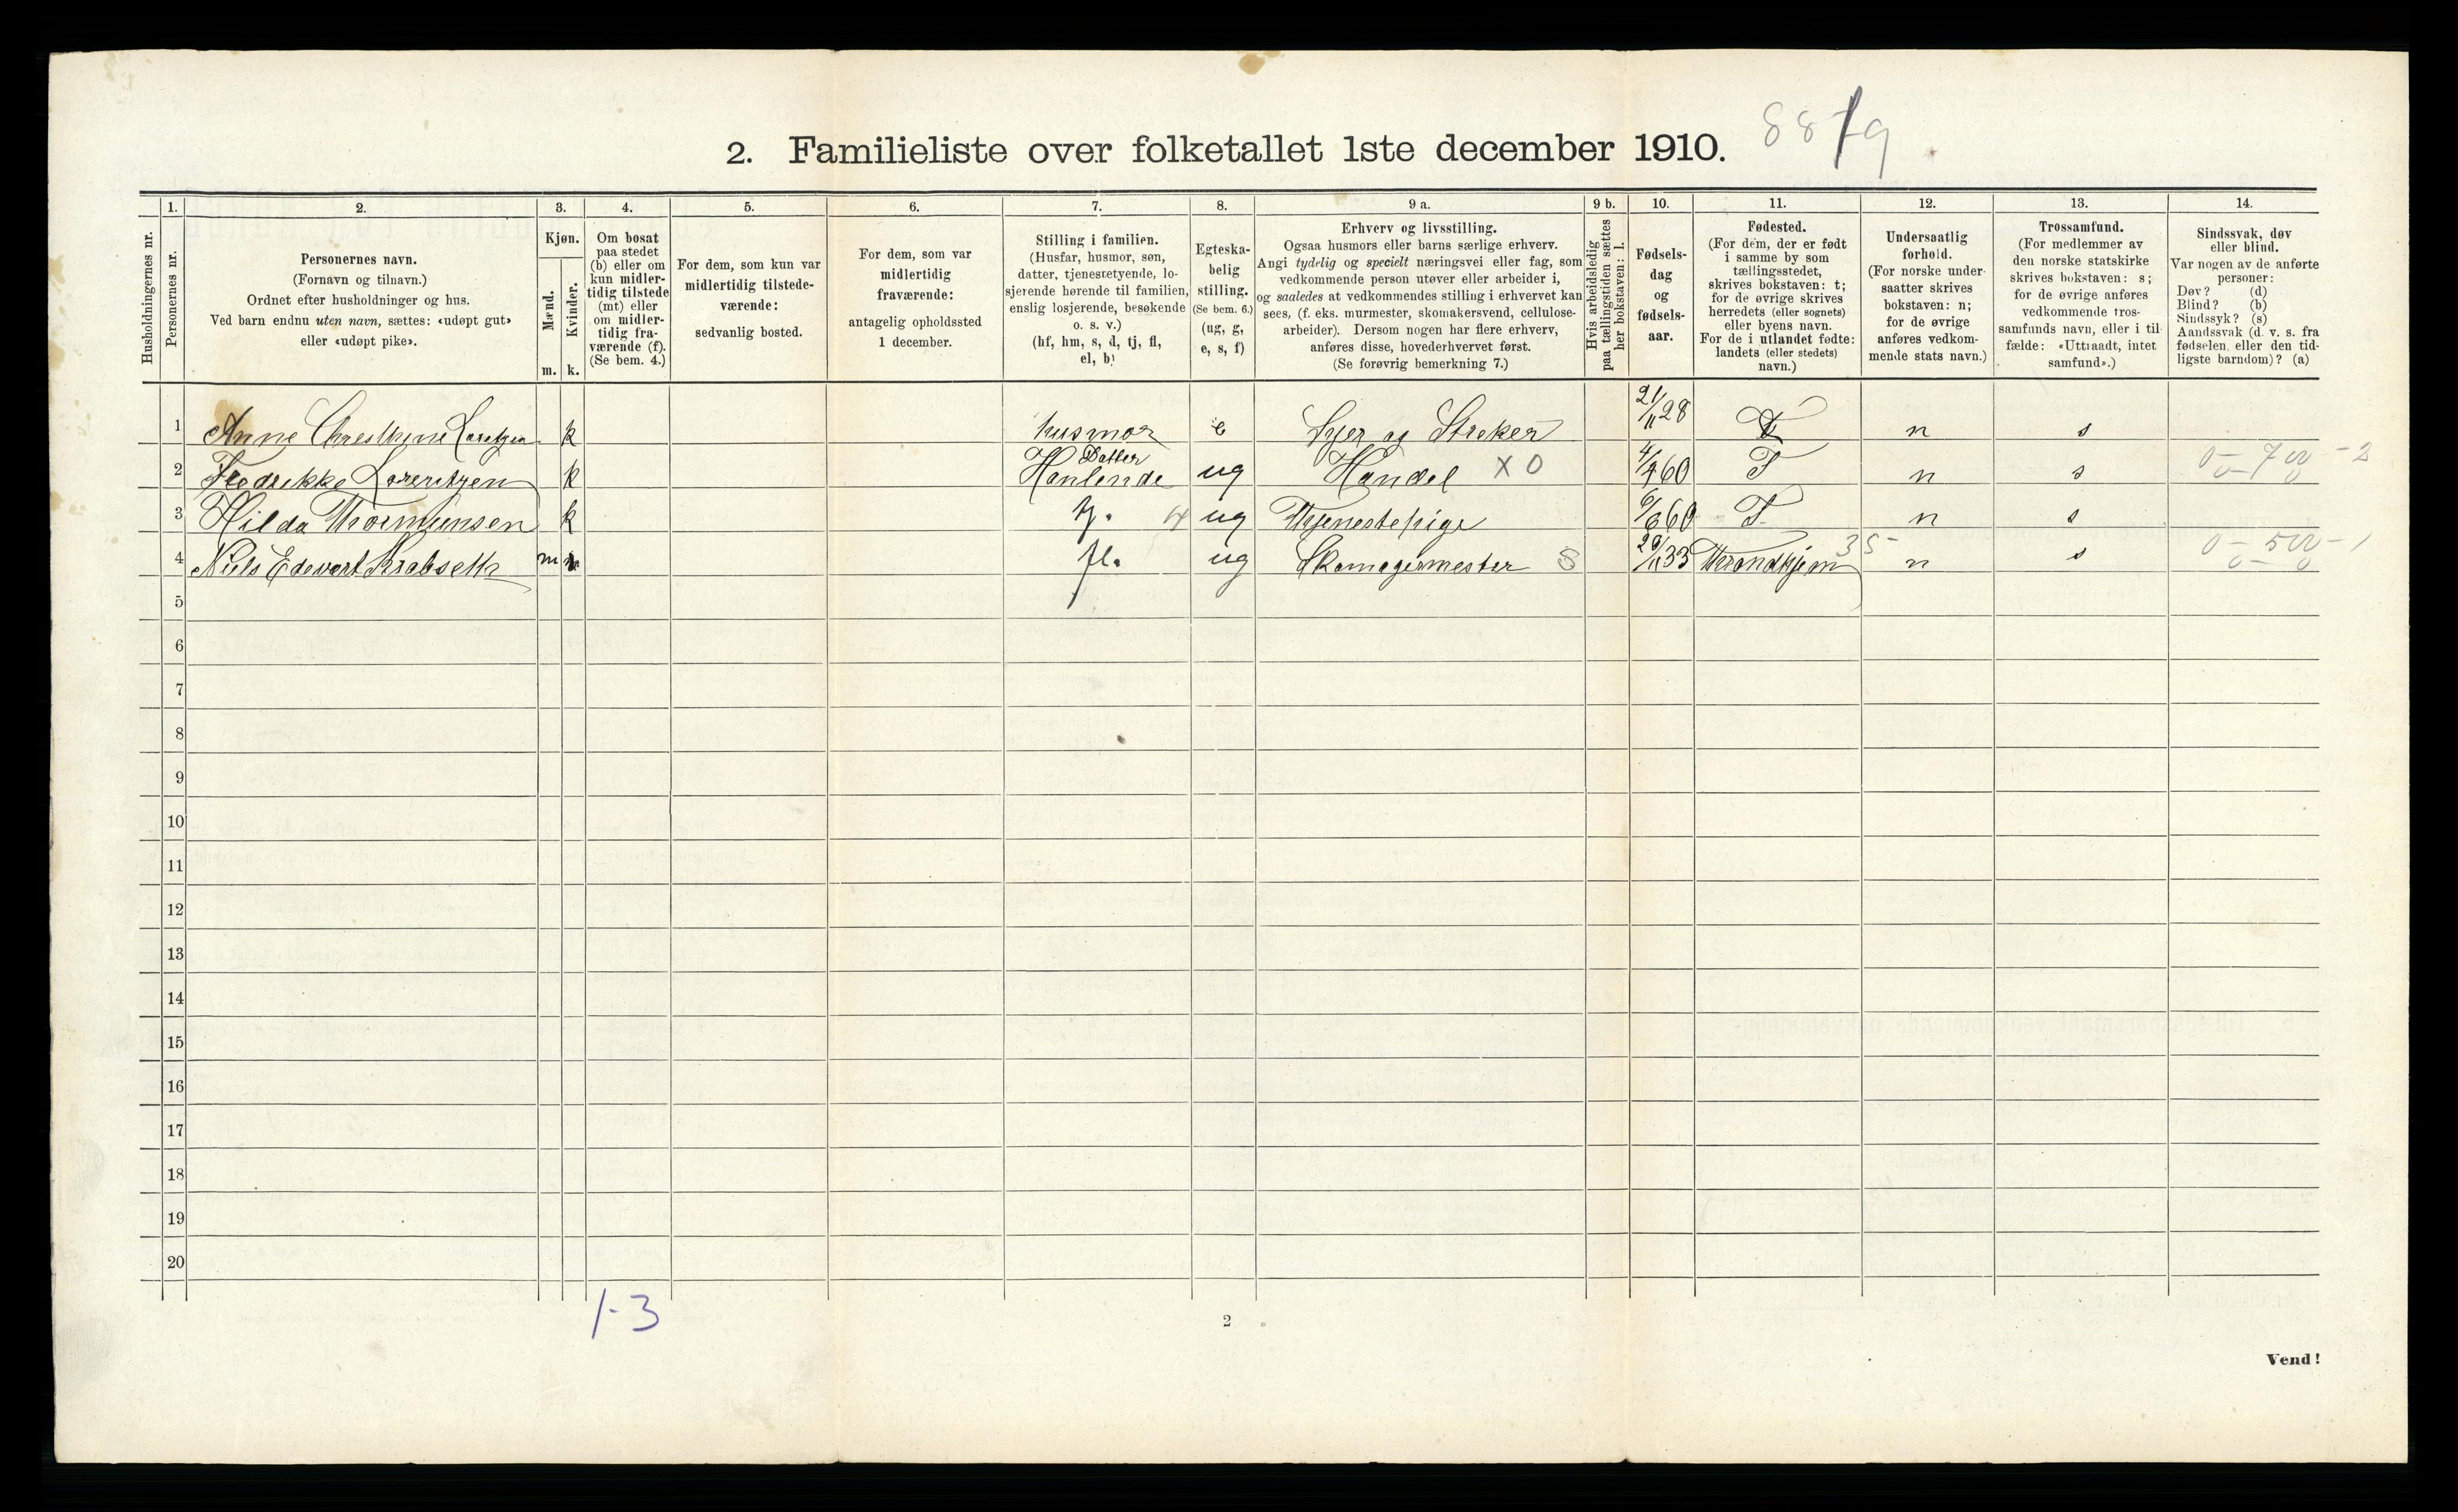 2. Familieliste over folketallet 1ste december 1910.
88 79
1. 2. 3. 4. 5. 6. 7. 8. 9 a. 9 b. 10. 11. 12. 13. 14.
Husholdningernes nr.
Personernes nr.
Personernes navn.
(Fornavn og tilnavn.)
Ordnet efter husholdninger og hus.
Ved barn endnu uten navn, sættes: «udøpt gut»
eller «udøpt pike».
Kjøn.
Mænd.
Kvinder.
m. k.
Om bosat
paa stedet
(b) eller om
kun midler-
tidig tilstede
(mt) eller
om midler-
tidig fra-
værende (f).
(Se bem. 4.)
For dem, som kun var
midlertidig tilstede-
værende:
sedvanlig bosted.
For dem, som var
midlertidig
fraværende:
antagelig opholdssted
1 december.
Stilling i familien.
(Husfar, husmor, søn,
datter, tjenestetyende, lo-
sjerende hørende til familien,
enslig losjerende, besøkende
o. s. v.)
(hf, hm, s, d, tj, fl,
el, b)
Egteska-
belig
stilling.
(Se bem. 6.)
(ug, g,
e, s, f)
Erhverv og livsstilling.
Ogsaa husmors eller barns særlige erhverv.
Angi tydelig og specielt næringsvei eller fag, som
vedkommende person utøver eller arbeider i,
og saaledes at vedkommendes stilling i erhvervet kan
sees, (f. eks. murmester, skomakersvend, cellulose-
arbeider). Dersom nogen har flere erhverv,
anføres disse, hovederhvervet først.
(Se forøvrig bemerkning 7.)
Hvis arbeidsledig
paa tællingstiden sættes
her bokstaven: l.
Fødsels-
dag
og
fødsels-
aar.
Fødested.
(For dem, der er født
i samme by som
tællingsstedet,
skrives bokstaven: t;
for de øvrige skrives
herredets (eller sognets)
eller byens navn.
For de i utlandet fødte:
landets (eller stedets)
navn.)
Undersaatlig
forhold.
(For norske under-
saatter skrives
bokstaven: n;
for de øvrige
anføres vedkom-
mende stats navn.)
Trossamfund.
(For medlemmer av
den norske statskirke
skrives bokstaven: s;
for de øvrige anføres
vedkommende tros-
samfunds navn, eller i til-
fælde: «Uttraadt, intet
samfund».)
Sindssvak, døv
eller blind.
Var nogen av de anførte
personer:
Døv? (d)
Blind? (b)
Sindssyk? (s)
Aandssvak (d. v. s. fra
fødselen eller den tid-
ligste barndom)? (a)
1 Anne Chresthine Loretzen k husmor e Syer og Streker 21/11 28 n s
2 Fredrikke Lorentzen k Datter Hanlende ug Handel X 0 4/4 60 T n s 0-700-2
3 Hilda Thormunsen k tj. ug Thjenestepige 6/6 60 T n s
4 Niels Edevart Krabseth m fl. ug Skomagermester 8 29/11 33 Therondhjem 35- n s 0-500-1
5
6
7
8
9
10
11
12
13
14
15
16
17
18
19
20
1-3
2
Vend!